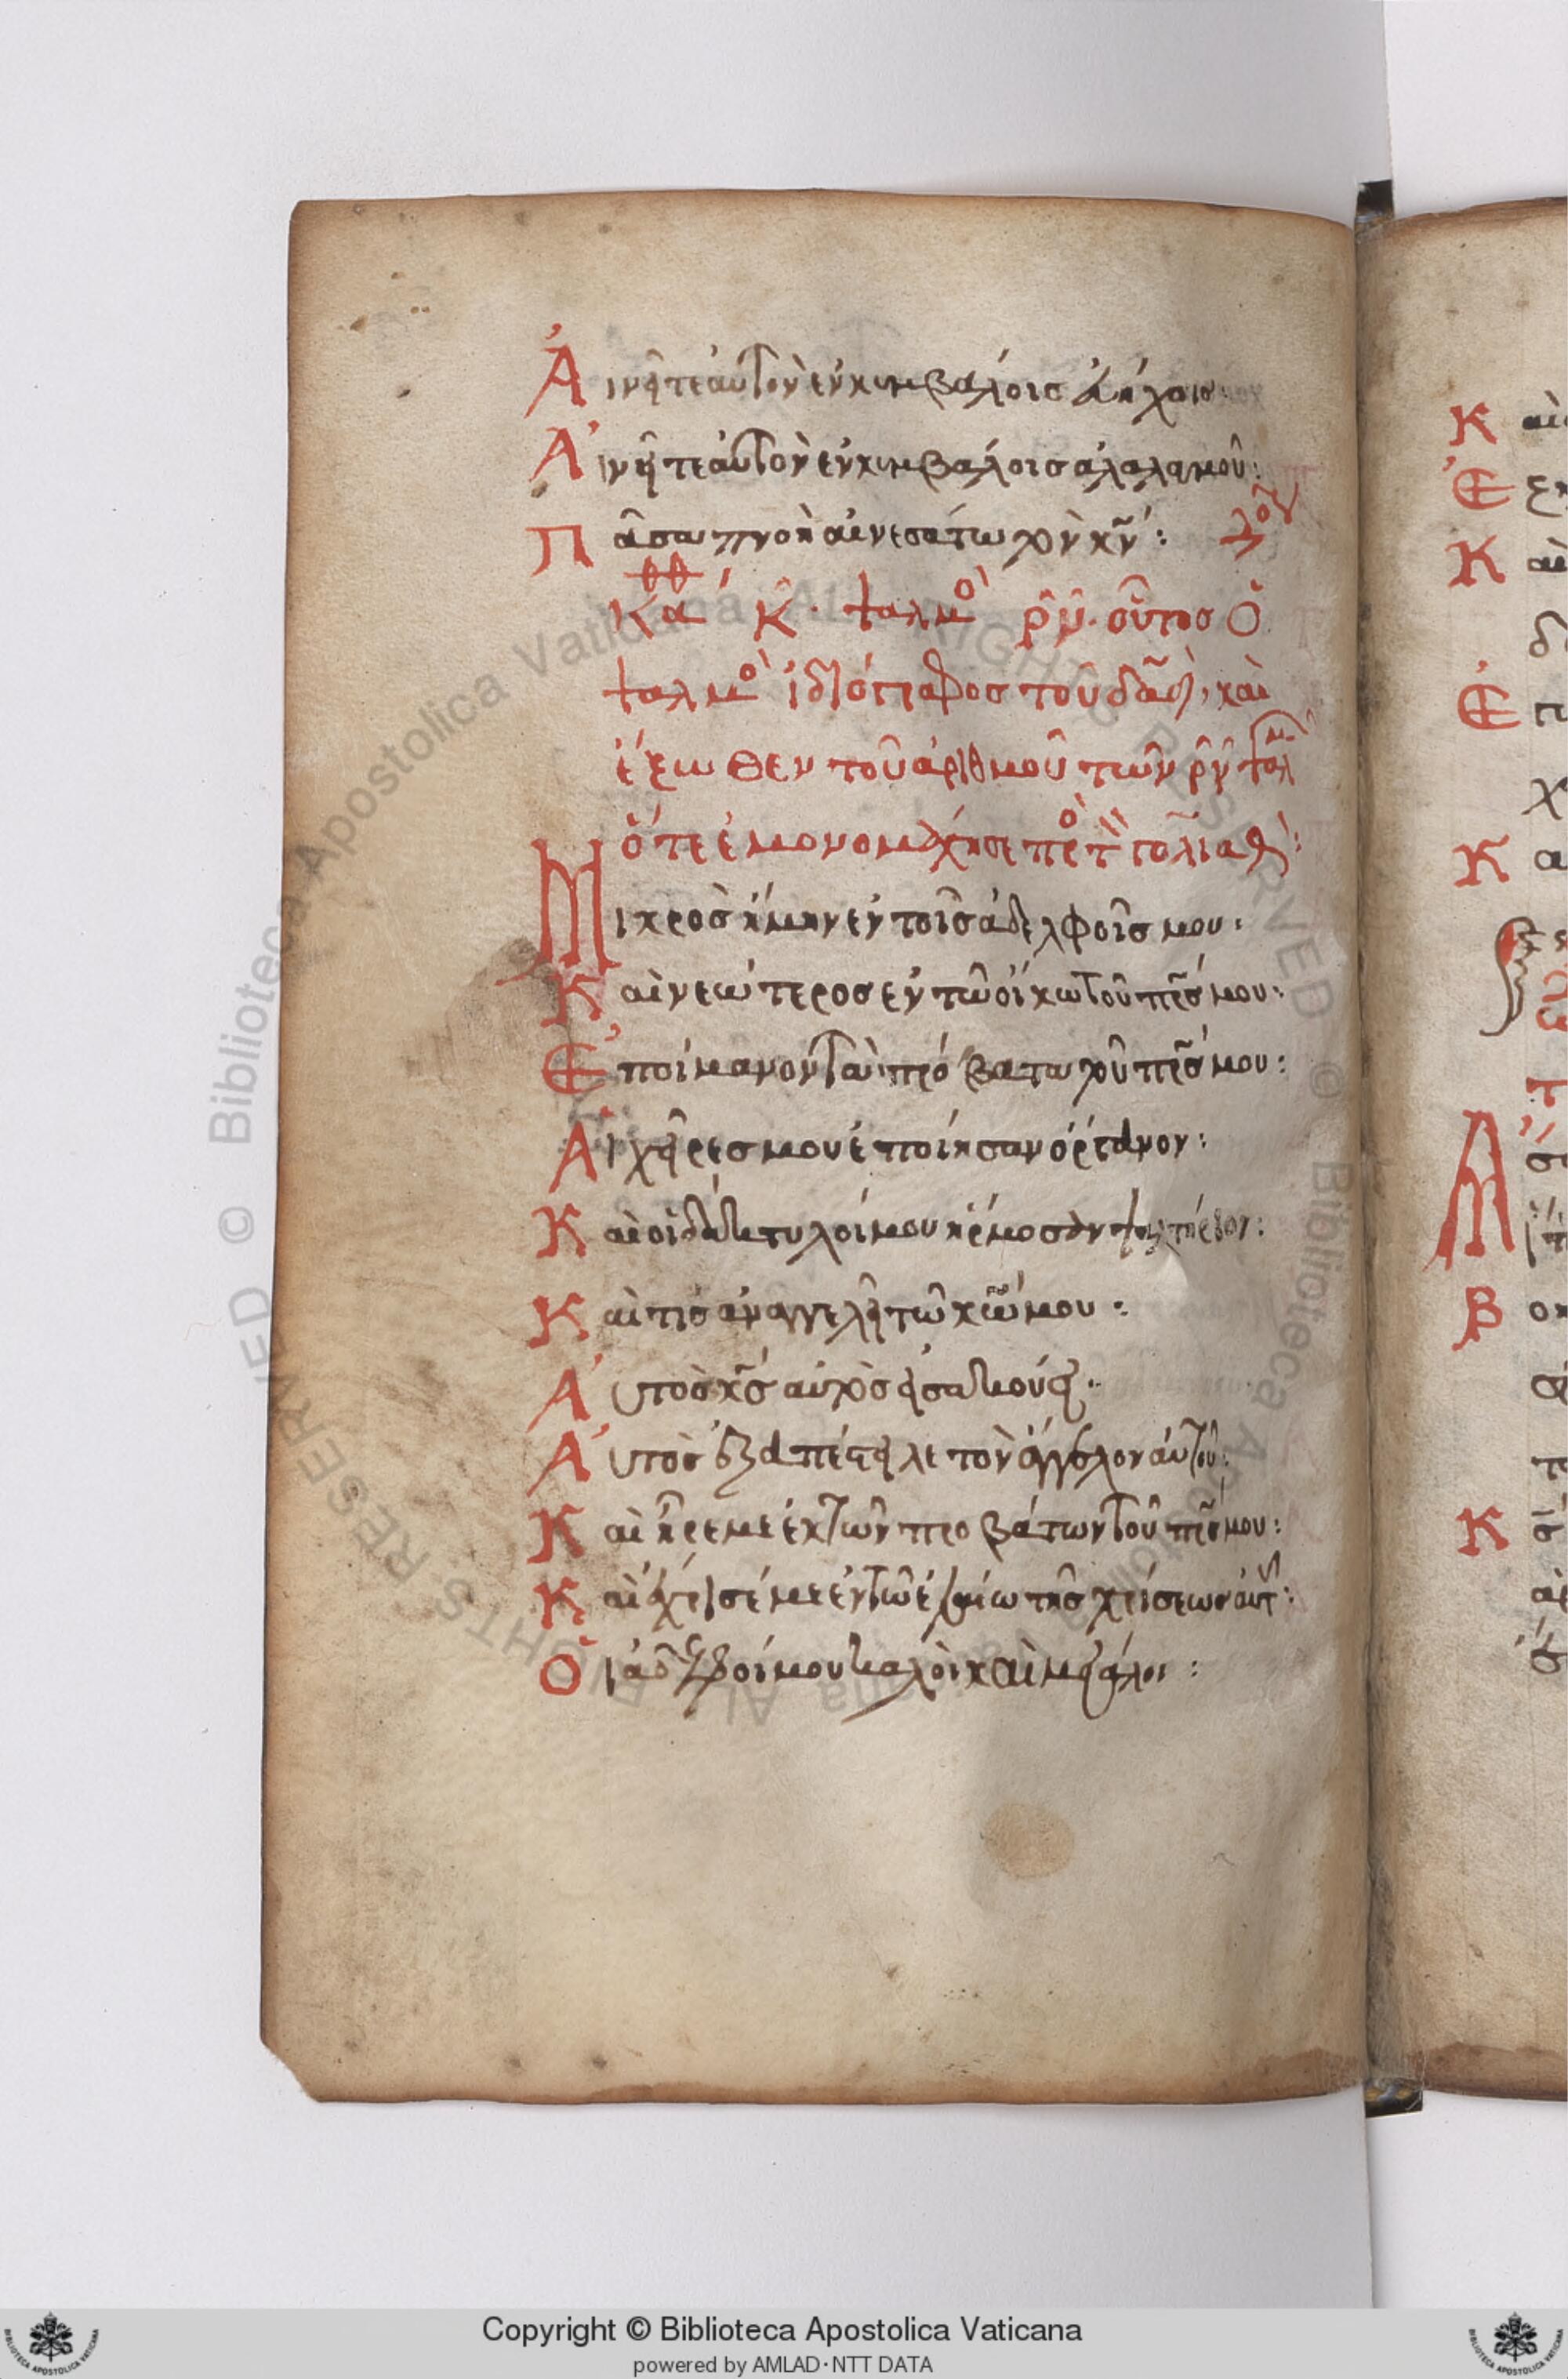 Ἀινῆτε ἀυτον ἐν κυμβαλοις ἐυήχοισ:
Ἀινῆτε ἀυτον ἐν κυμβαλοισ ἀλαλαμοῦ:
Πᾶσα πνοὴ αἰνεσάτω τὸν κν:
ψαλμο ρν. οὗτοσ ὁ
ψαλμο ἰδιόγραφοσ τοῦ δαδ, καὶ
ἔξωθεν τοῦ ἀριθμοῦ τῶν ρν ψαλμ
ὅτε ἐμονομάχησε πρ τ γολιαδ:
Μικροσ ἤμην ἐν τοῖσ ἀδελφοῖσ μου:
Καὶ νεώτεροσ ἐν τῶ οἴκω τοῦ πρσ μου:
Ἐποίμανον τὰ πρόβατα τοῦ πρσ μου:
Ἁι χεῖρεσ μου ἐποίησαν ὄργανον:
Καὶ οἱ δάκτυλοί μου ἥρμοσαν ψαλτήριον:
Καὶ τίσ ἀναγγελεῖ τῶ κω μου:
Ἀυτὸσ κσ αὐτὸσ εἰσακούει:
Ἀυτὸσ ἐξαπέστειλε τὸν ἄγγελον ἀυτοῦ:
Καὶ ἦρε με ἐκ τῶν προβάτων τοῦ πρσ μου:
Καὶ ἔχρισέ με ἐν τῶ ἐλαίω τῆσ χρίσεωσ ἀυτ:
Ὁι ἀδελφοί μου καλοὶ καὶ μεγάλοι:
Κ αι
Κ
Β
Copyright © Biblioteca Apostolica Vaticana
powered by AMLAD·NTT DATA